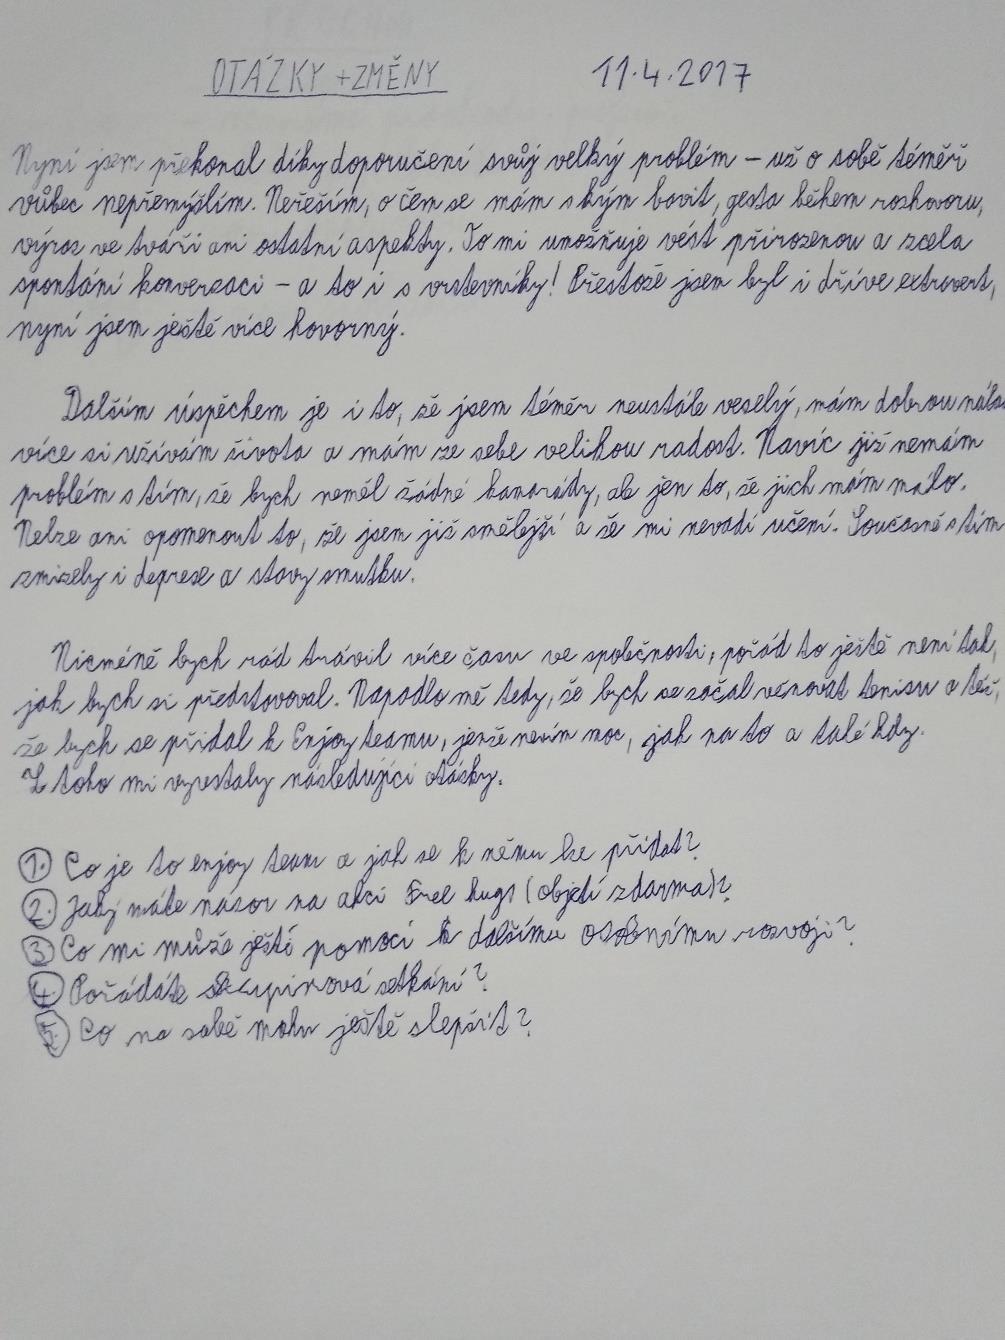 OTÁZKY + ZMĚNY 11.4.2017
Nyní jsem překonal díky doporučení svůj velký problém – už o sobě téměř
vůbec nepřemýšlím. Neřeším, o čem se mám s kým bavit, gesta během rozhovoru,
výraz ve tváři ani ostatní aspekty. To mi umožňuje vést přirozenou a zcela
spontání konverzaci – a to i s vrstevníky! Přestože jsem byl i dříve extrovert,
nyní jsem ještě více hovorný.
Dalším úspěchem je i to, že jsem téměr neustále veselý, mám dobrou
více si užívám života a mám ze sebe velikou radost. Navíc již nemám
problém s tím, že bych neměl žádné kamarády, ale jen to, že jich mám málo.
Nelze ani opomenout to, že jsem již smělejší a že mi nevadí učení. Současně s tím
zmizely i deprese a stavy smutku.
Nicméně bych rád trávil více času ve společnosti, pořád to ještě není tak,
jak bych si představoval. Napadlo mě tedy, že bych se začal věnovat tenisu a též,
že bych se přidal k Enjoy teamu, jenže nevím moc, jak na to a také kdy.
Z toho mi vyvstaly následující otázky.
1. Co je to enjoy team a jak se k němu lze přidat?
2. Jaký máte názor na akci Free hugs (objetí zdarma)?
3. Co mi může ještě pomoci k dalšímu osobnímu rozvoji?
4. Pořádáte skupinová setkání?
5. Co na sobě mohu ještě slepšit?